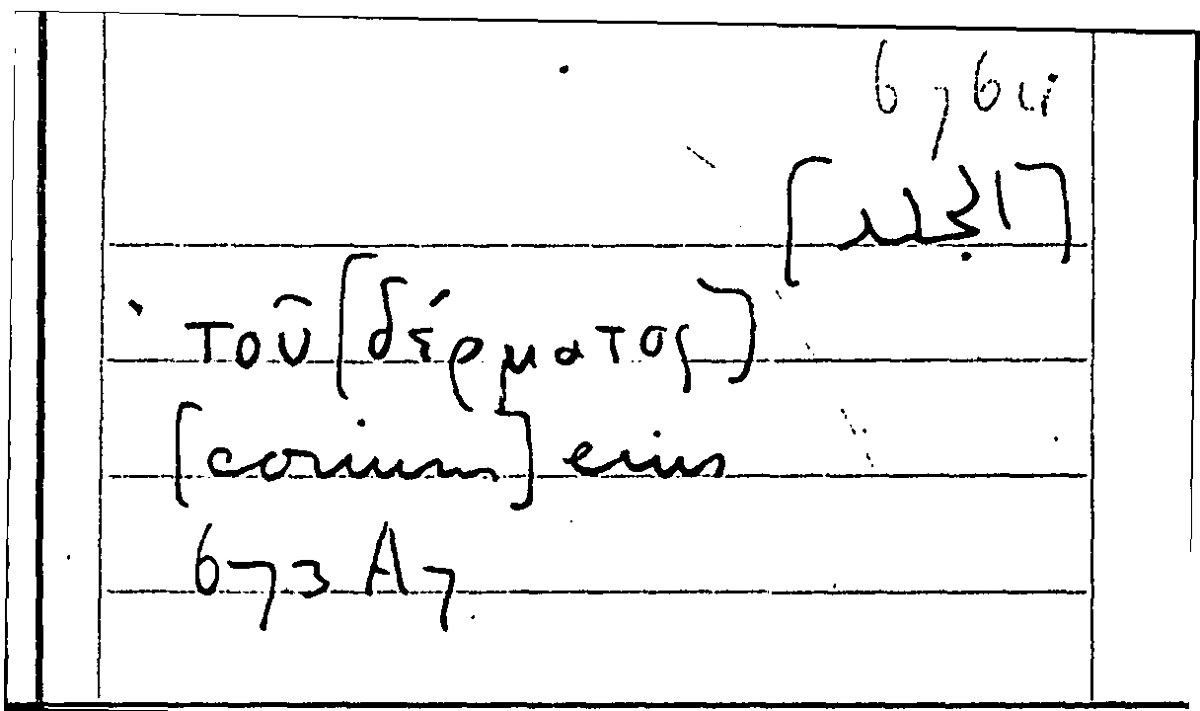 [الجلد]
τοῦ [δέρματος]
[corium] eius
673 A7